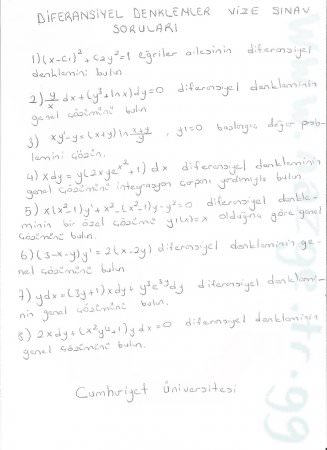 DİFERANSİYEL DENKLEMLER VİZE SINAV
SORULARI
1) (x-c₁)² + c₂y² = 1 eğriler ailesinin diferansiyel
denklemini bulun
2) y/x dx + (y³+lnx)dy = 0 diferansiyel denkleminin
genel çözümünü bulun
3) xy'-y = (x+y)ln (x+y)/x , y(1)=0 başlangıç değer prob-
lemini çözün.
4) xdy = y(2xye^x²+1)dx diferansiyel denkleminin
genel çözümünü integrasyon çarpanı yardımıyla bulun
5) x(x²-1)y' + x² - (x²-1)y - y² = 0 diferansiyel denkle-
minin bir özel çözümü y₁(x)=x olduğuna göre genel
çözümünü bulun.
6) (3-x-y)y' = 2(x-2y) diferansiyel denkleminin ge-
nel çözümünü bulun
7) ydx = (3y+1)xdy + y³e^3y dy diferansiyel denklemi-
nin genel çözümünü bulun.
8) 2xdy + (x²y⁴+1)ydx = 0 diferansiyel denkleminin
genel çözümünü bulun.
Cumhuriyet Üniversitesi